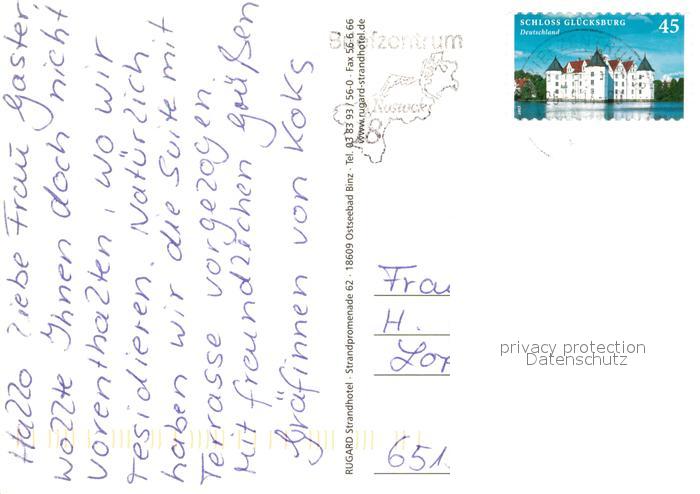 Hallo liebe Frau Gaster,
wollte Ihnen doch nicht
vorenthalten, wo wir
residieren. Natürlich
haben wir die Suite mit
Terrasse vorgezogen.
Mit freundlichen Grüßen
Gräfinnen von Koks
RUGARD Strandhotel · Strandpromenade 62 · 18609 Ostseebad Binz · Tel. 03 83 93 / 56-0 · Fax 56-6 66
www.rugard-strandhotel.de
Briefzentrum
Rostock
18
SCHLOSS GLÜCKSBURG
Deutschland
45
Frau
H.
Lor
651
privacy protection
Datenschutz